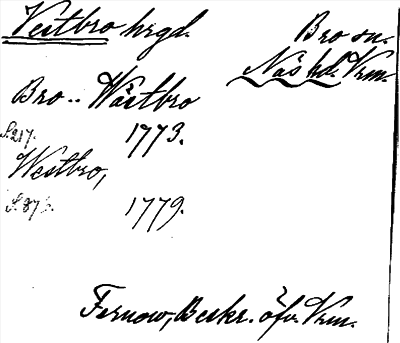 Vestbro hrgd. Bro sn.
Näs hd. Vrm.
Bro .. Wästbro
S. 217. 1773.
Westbro,
1779.
Fernow, Beskr. öfv. Vrm.